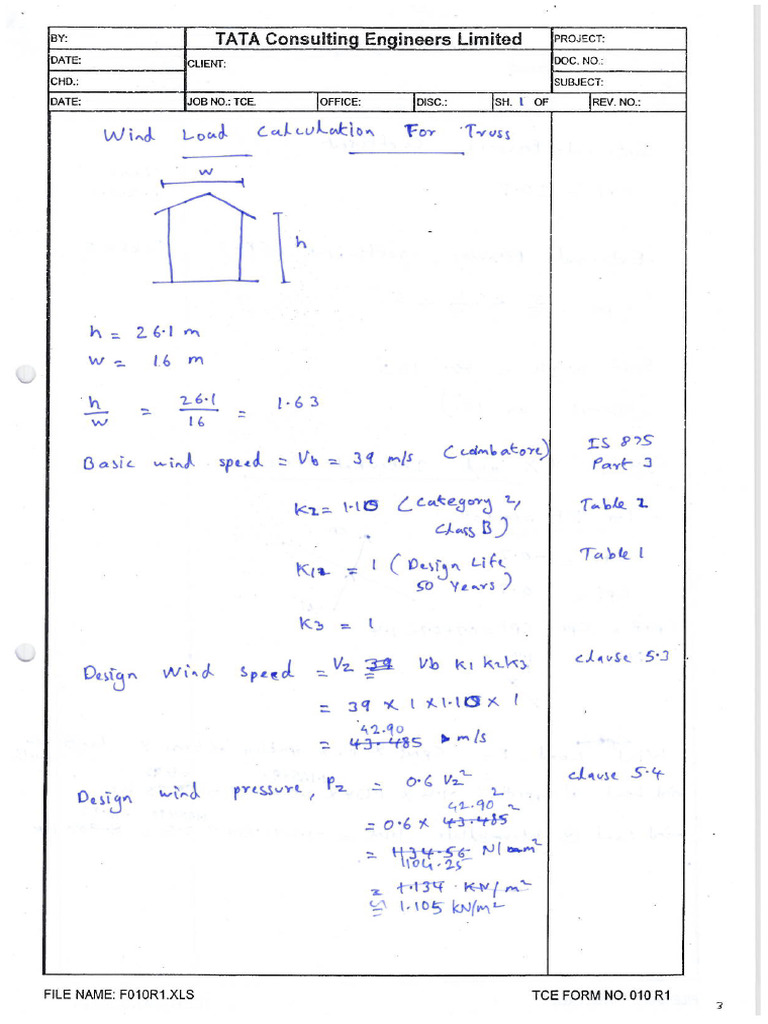 BY:
TATA Consulting Engineers Limited
PROJECT:
DATE:
CLIENT:
DOC. NO.:
CHD.:
SUBJECT:
DATE:
JOB NO.: TCE.
OFFICE:
DISC.:
SH. 1 OF
REV. NO.:
Wind Load Calculation For Truss
w
h
h = 26.1 m
w = 16 m
h/w = 26.1/16 = 1.63
Basic wind speed = Vb = 39 m/s (Coimbatore) IS 875 Part 3
K2 = 1.10 (Category 2, Class B) Table 2
K1 = 1 (Design Life 50 Years) Table 1
K3 = 1
Design Wind Speed = Vz = 39 Vb K1 K2 K3 Clause 5.3
= 39 x 1 x 1.10 x 1
42.90
= 43.485 m/s
Design wind pressure, Pz = 0.6 Vz² Clause 5.4
42.90²
= 0.6 x 43.485²
= 1134.56 N/m²
1104.25
= 1.134 KN/m²
≅ 1.105 kN/m²
FILE NAME: F010R1.XLS
TCE FORM NO. 010 R1
3